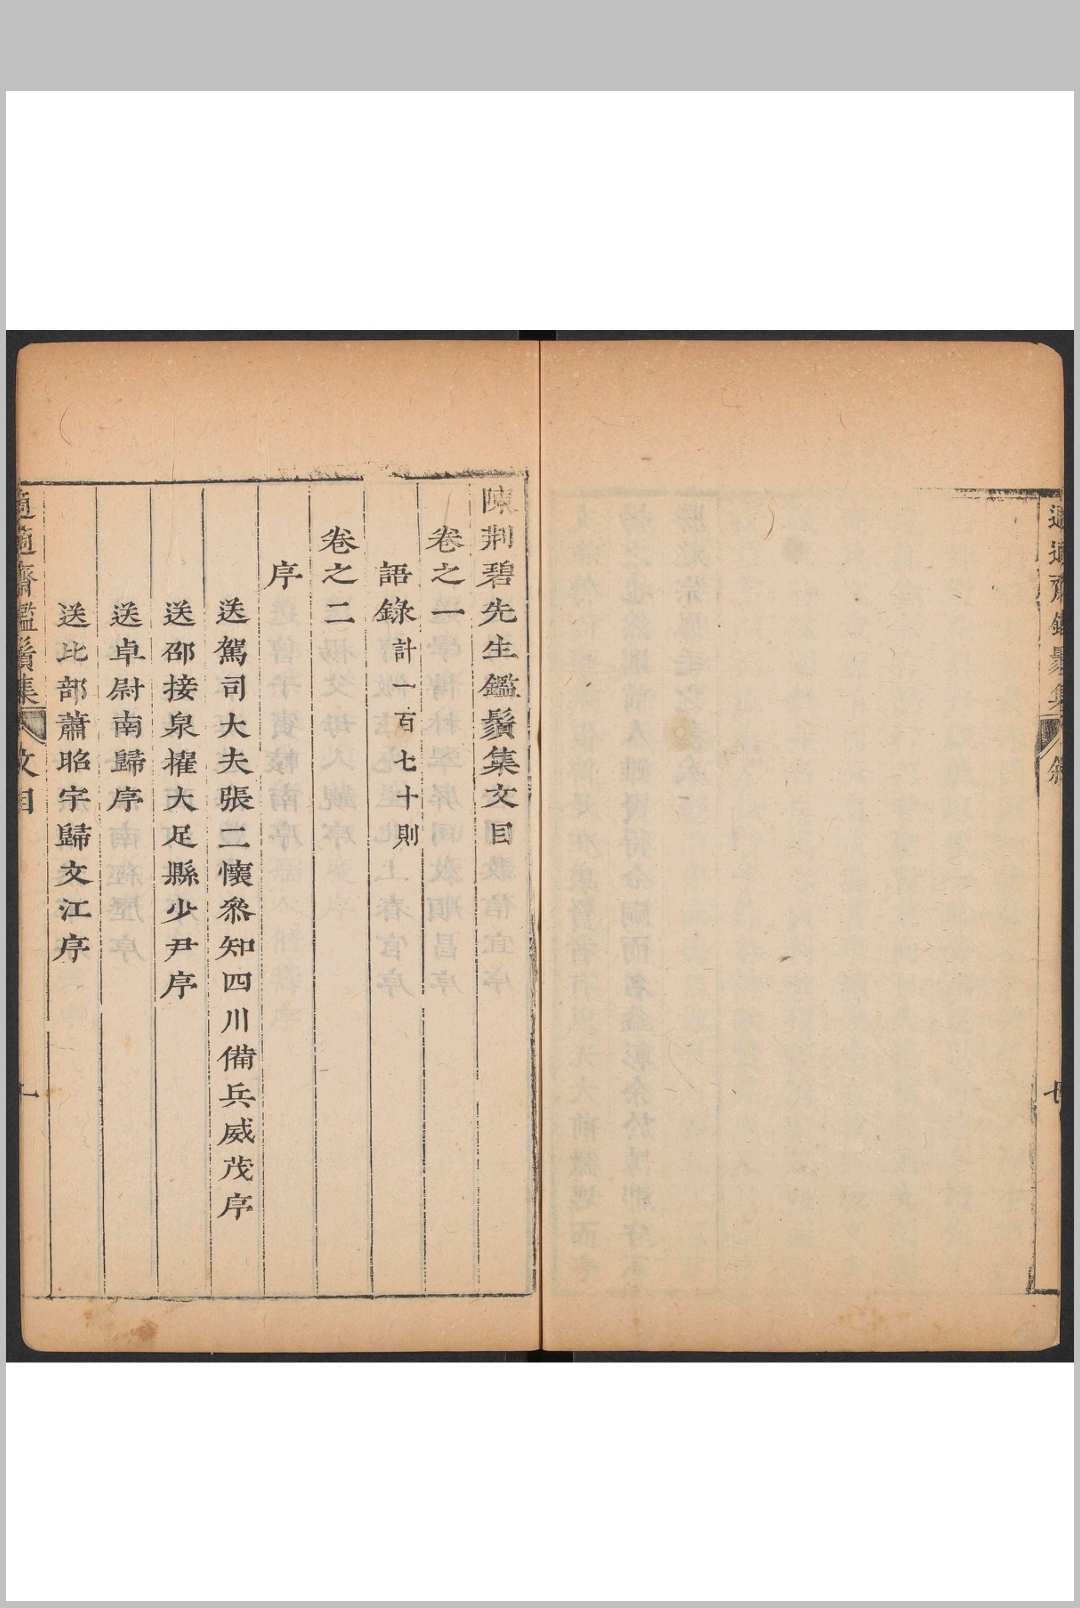 陳荆碧先生鑑鬚集文目
卷之一
語錄計一百七十則
卷之二
序
送駕司大夫張二懷叅知四川備兵威茂序
送邵接泉擢大足縣少尹序
送卓尉南歸序
送比部蕭昭宇歸文江序
適適齋鑑鬚集
文目
一